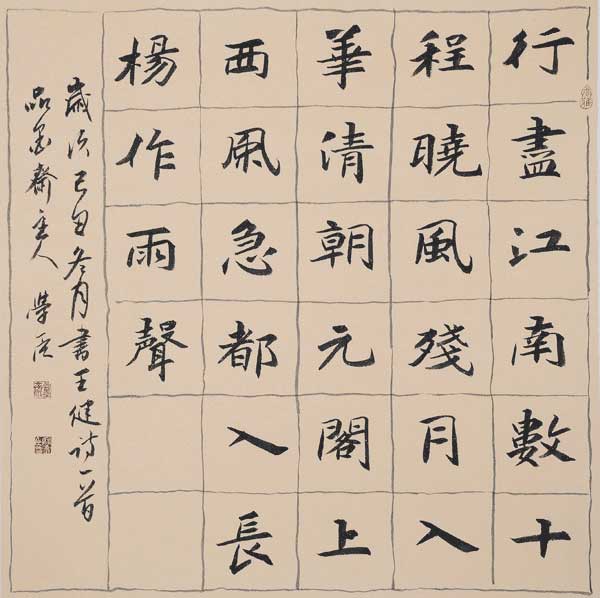 行盡江南數十
程曉風殘月入
華清朝元閣上
西風急都入長
楊作雨聲
歲次己丑冬月書王健詩一首
品墨齋主人